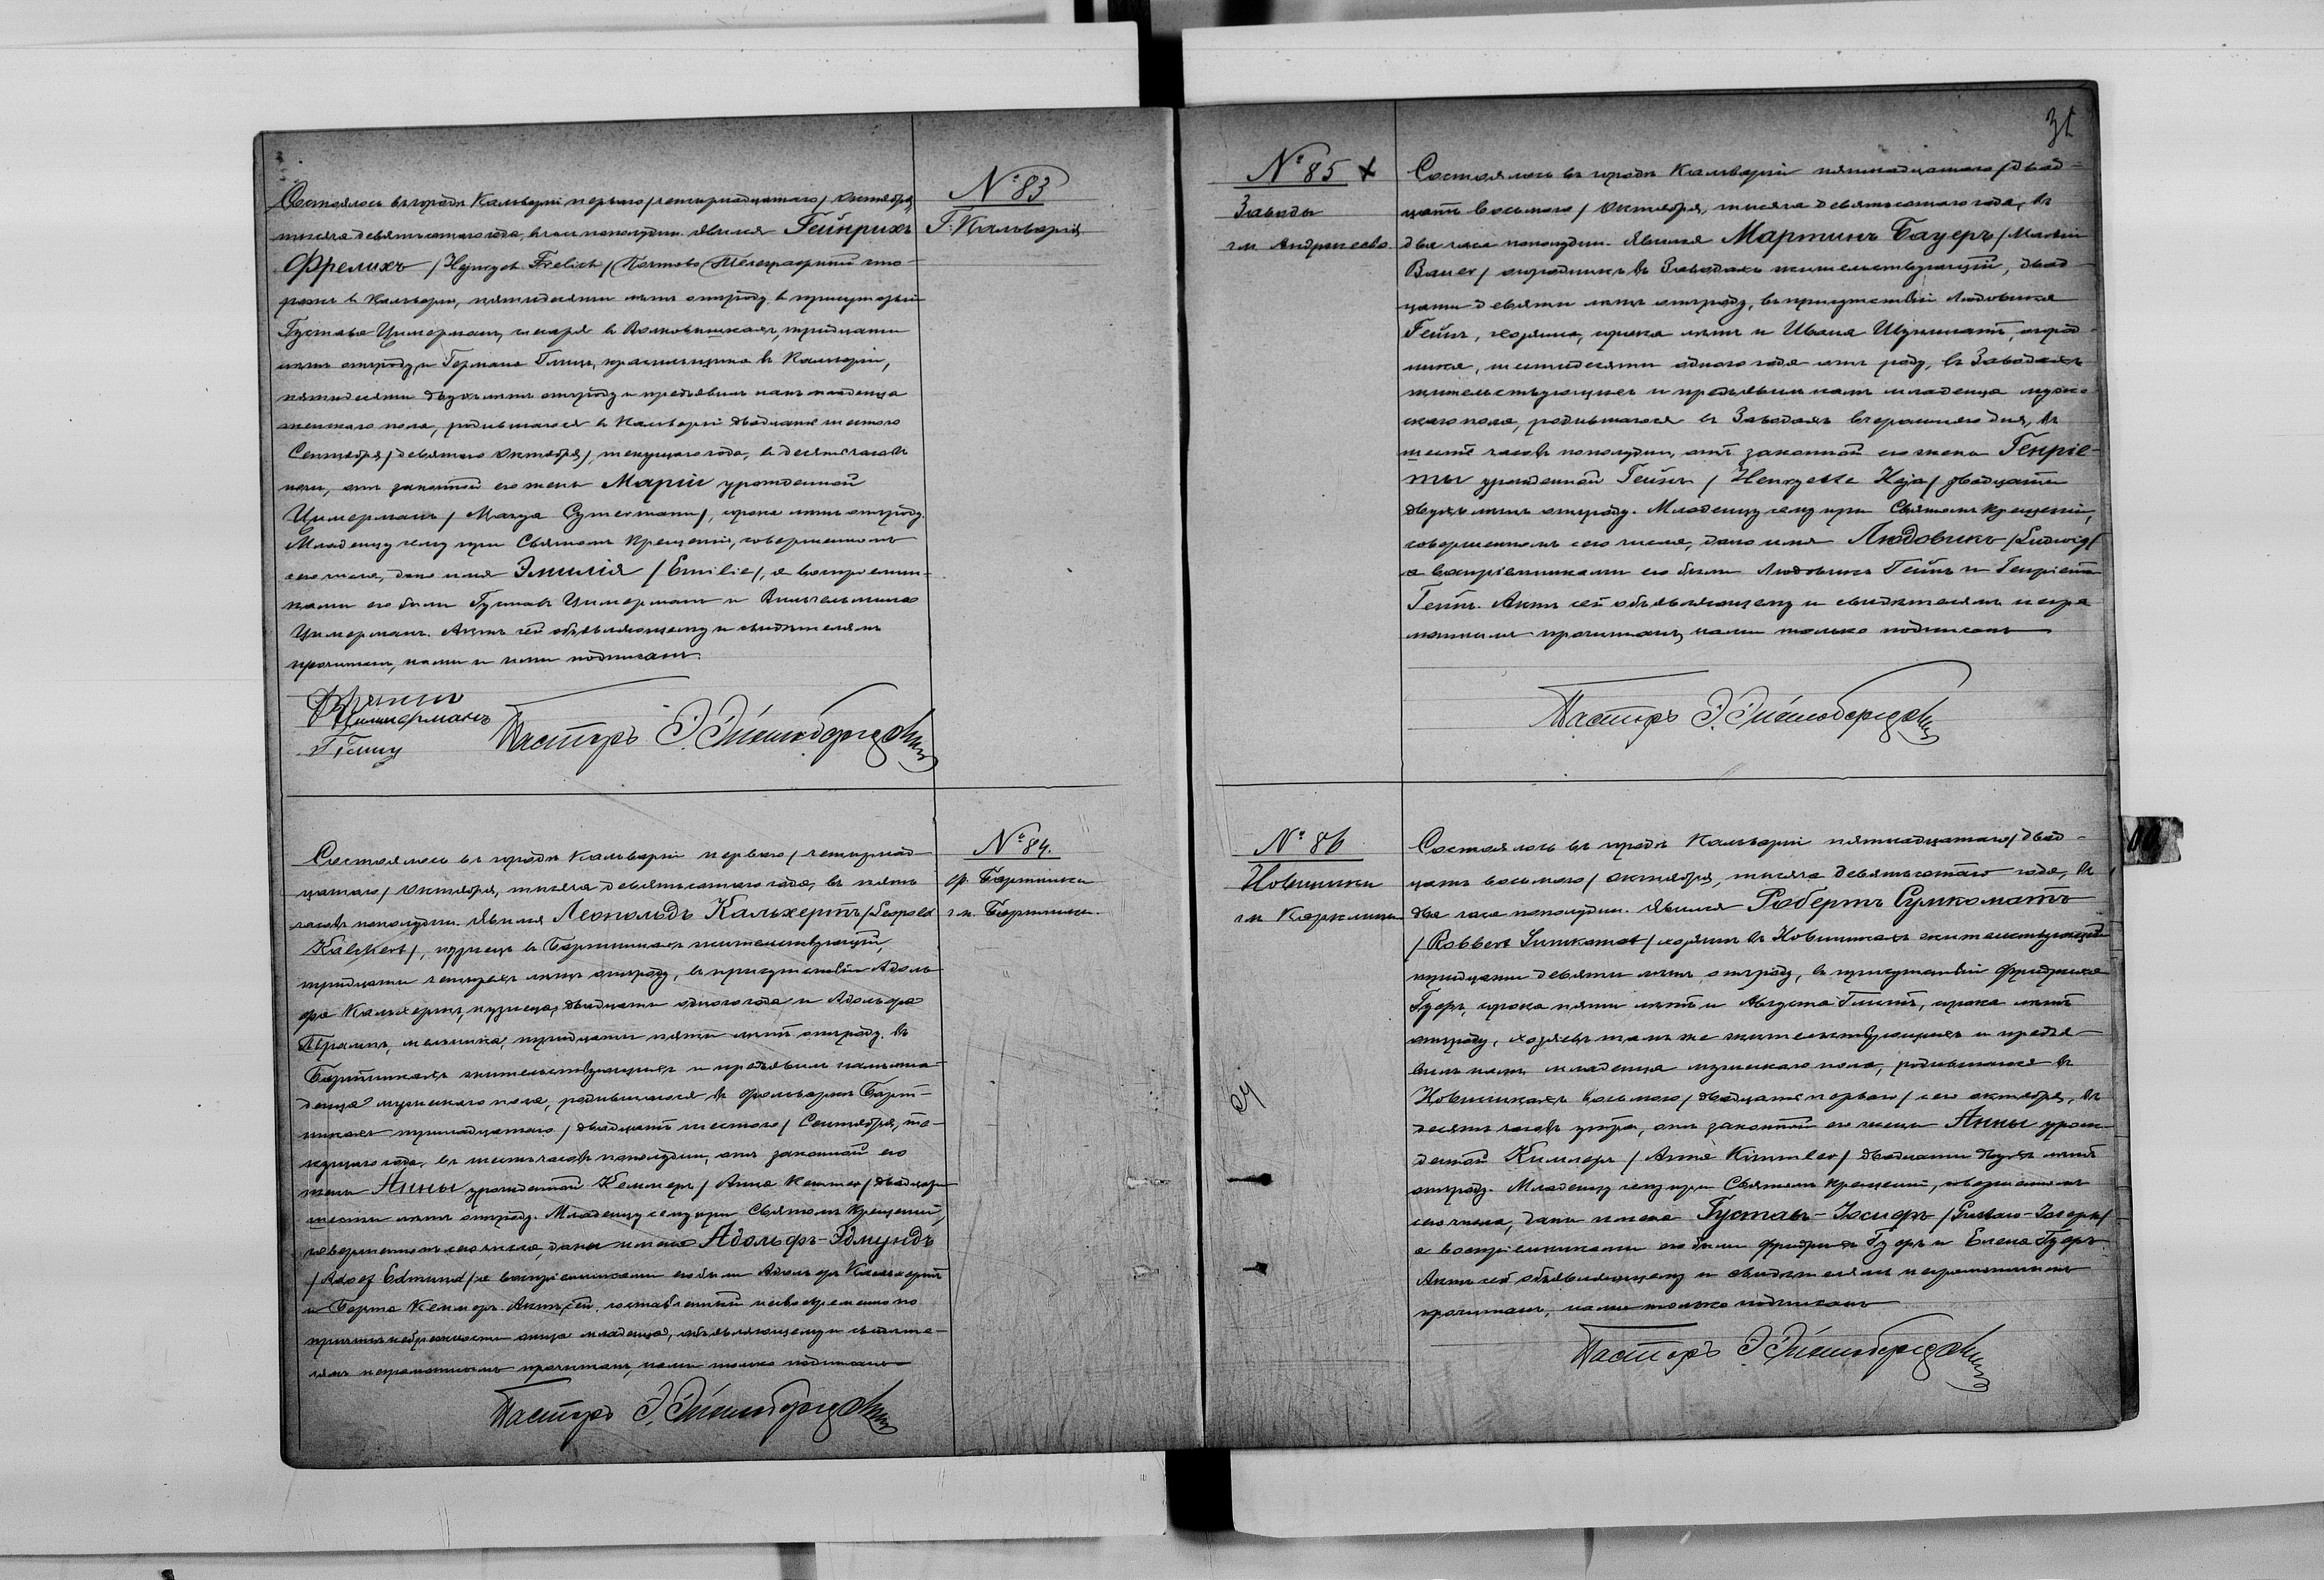 Состоялось въ городѣ Кальваріи перваго /четырнадцатаго/ Октября
тысяча девятьсотаго года, въ часъ пополудни. Явился Гейнрихъ
Фрелихъ /Henrych Frelich/ Почтово Телеграфный сто-
рожъ въ Кальваріи, пятидесяти лѣтъ отъ роду, въ присутствіи
Густава Цимерманъ, слесаря въ Волковышкахъ, тридцати
лѣтъ отъ роду, и Германа красильщика въ Кальваріи,
пятидесяти двухъ лѣтъ отъ роду и предъявилъ намъ младенца
женскаго пола, родившагося въ Кальваріи двадцать шестого
Сентября /девятаго Октября/ текущаго года, въ десять часовъ
ночи, отъ законной его жены Маріи урожденной
Цимерманъ / Marya Cymermann/, сорока лѣтъ отъ роду.
Младенцу сему при Святомъ Крещеніи, совершенномъ
сего числа, дано имя Эмилія /Emilie/, а воспріемни-
ками его были Густавъ Цимерманъ и Вильгельмина
Цимерманъ. Актъ сей объявляющему и свидѣтелямъ
прочитанъ, нами и ими подписанъ.
Цимерманъ
Пасторъ
№ 83
Г. Кальварія
Состоялось въ городѣ Кальваріи перваго /четырнад-
цатаго/ Октября, тысяча девятьсотаго года, въ пять
часовъ пополудни. Явился Леопольдъ Кальхертъ /Leopold
Kalchert/, кузнецъ въ Бартникахъ жительствующій,
тридцати четырехъ лѣтъ отъ роду, въ присутствіи Адоль-
фа Кальхертъ, кузнеца, двадцати одного года и Адольфа
мельника, тридцати пяти лѣтъ отъ роду, въ
Бартникахъ жительствующихъ и предъявилъ намъ мла-
денца мужескаго пола, родившагося въ фольваркѣ Барт-
никахъ тринадцатаго /двадцать шестого/ Сентября, те-
кущаго года, въ шесть часовъ пополудни, отъ законной его
жены Анны урожденной Кеммеръ / Anna Kemmer/ двадцати
шести лѣтъ отъ роду. Младенцу сему при Святомъ Крещеніи,
совершенномъ сего числа, даны имена Адольфъ-Эдмундъ
/Adolf Edmund/ а воспріемниками его были Адольфъ Кальхертъ
и Берта Кеммеръ. Актъ сей, составленный несвоевременно по
причинѣ небрежности отца младенца, объявляющему и свидѣте-
лямъ неграмотнымъ прочитанъ, нами только подписанъ
Пасторъ
№ 84.
ф. Бартники
гм. Бартники.
31
№ 85 x
Заводы
гм. Андреево
Состоялось въ городѣ Кальваріи пятнадцатаго /двад-
цать восьмого/ Октября, тысяча девятьсотаго года, въ
два часа пополудни. Явился Мартинъ Бауеръ / Martin
Bauer/ огородникъ въ Заводахъ жительствующій, двад-
цати девяти лѣтъ отъ роду, въ присутствіи Людовика
Гейнъ, хозяина, сорока лѣтъ и Ивана огород-
ника, шестидесяти одного года отъ роду, въ Заводахъ
жительствующихъ и предъявилъ намъ младенца муже-
скаго пола, родившагося въ Заводахъ вчерашняго дня, въ
шесть часовъ пополудни, отъ законной его жены Генріе-
ты урожденной Гейнъ / Henryette двадцати
двухъ лѣтъ отъ роду. Младенцу сему при Святомъ Крещеніи,
совершенномъ сего числа, дано имя Людовикъ /Ludwig/
а воспріемниками его были Людовикъ Гейнъ и Генріета
Гейнъ. Актъ сей объявляющему и свидѣтелямъ негра-
мотнымъ прочитанъ, нами только подписанъ
Пасторъ
№ 86
Новиники
Состоялось въ городѣ Кальваріи пятнадцатаго /двад-
цать восьмого/ Октября, тысяча девятьсотаго года, въ
два часа пополудни. Явился Робертъ Сумкоматъ
/Robbert Sumkamat/ хозяинъ въ Новиникахъ жительствующій
тридцати девяти лѣтъ отъ роду, въ присутствіи Фридриха
Гуеръ, сорока пяти лѣтъ и Августа сорока лѣтъ
отъ роду, хозяевъ тамъ же жительствующихъ и предъя-
вилъ намъ младенца мужескаго пола, родившагося въ
Новиникахъ восьмого /двадцать перваго/ сего октября, въ
десять часовъ утра, отъ законной его жены Анны урож-
денной Киммлеръ / Anna Kimmler/ двадцати двухъ лѣтъ
отъ роду. Младенцу сему при Святомъ Крещеніи, совершенномъ
сего числа, даны имена Густавъ-Іосифъ /Gustaw-Joseph/
а воспріемниками его были Фридрихъ Гуеръ и Елена Гуеръ
Актъ сей объявляющему и свидѣтелямъ неграмотнымъ
прочитанъ, нами только подписанъ
Пасторъ